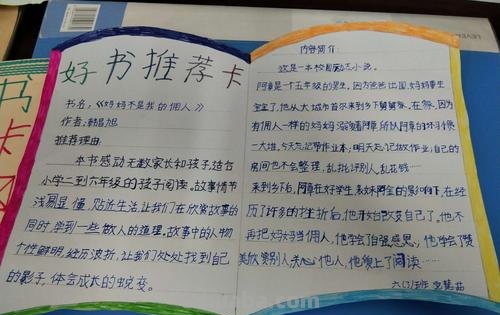 好书推荐卡
书名:《妈妈不是我的佣人》
作者:韩昌旭
推荐理由:
本书感动无数家长和孩子,适合
小学二到六年级的孩子阅读。故事情节
浅易显懂,贴近生活,让我们在欣赏故事的
同时,学到一些做人的道理。故事中的人物
个性鲜明,经历波折,让我们处处找到自己
的影子,体会成长的蜕变。
内容简介:
这是一本校园励志小说。
阿章是一个五年级的男生,因为爸爸出国,妈妈要生
宝宝了,他从大城市首尔来到乡下舅舅家。在家,因为
有佣人一样的妈妈溺爱着阿章,所以阿章的坏习惯
一大堆,今天忘记带作业本;明天忘记做作业;自己的
房间也不会整理,乱批评别人,乱花钱……
来到乡下后,阿章在好学生表妹阿金的影响下,在经
历了许多的挫折后,他开始改变自己了,他不
再把妈妈当佣人,他学会了自强感恩,他学会了赞
美欣赏别人,关心他人,他爱上了阅读……
书
卡